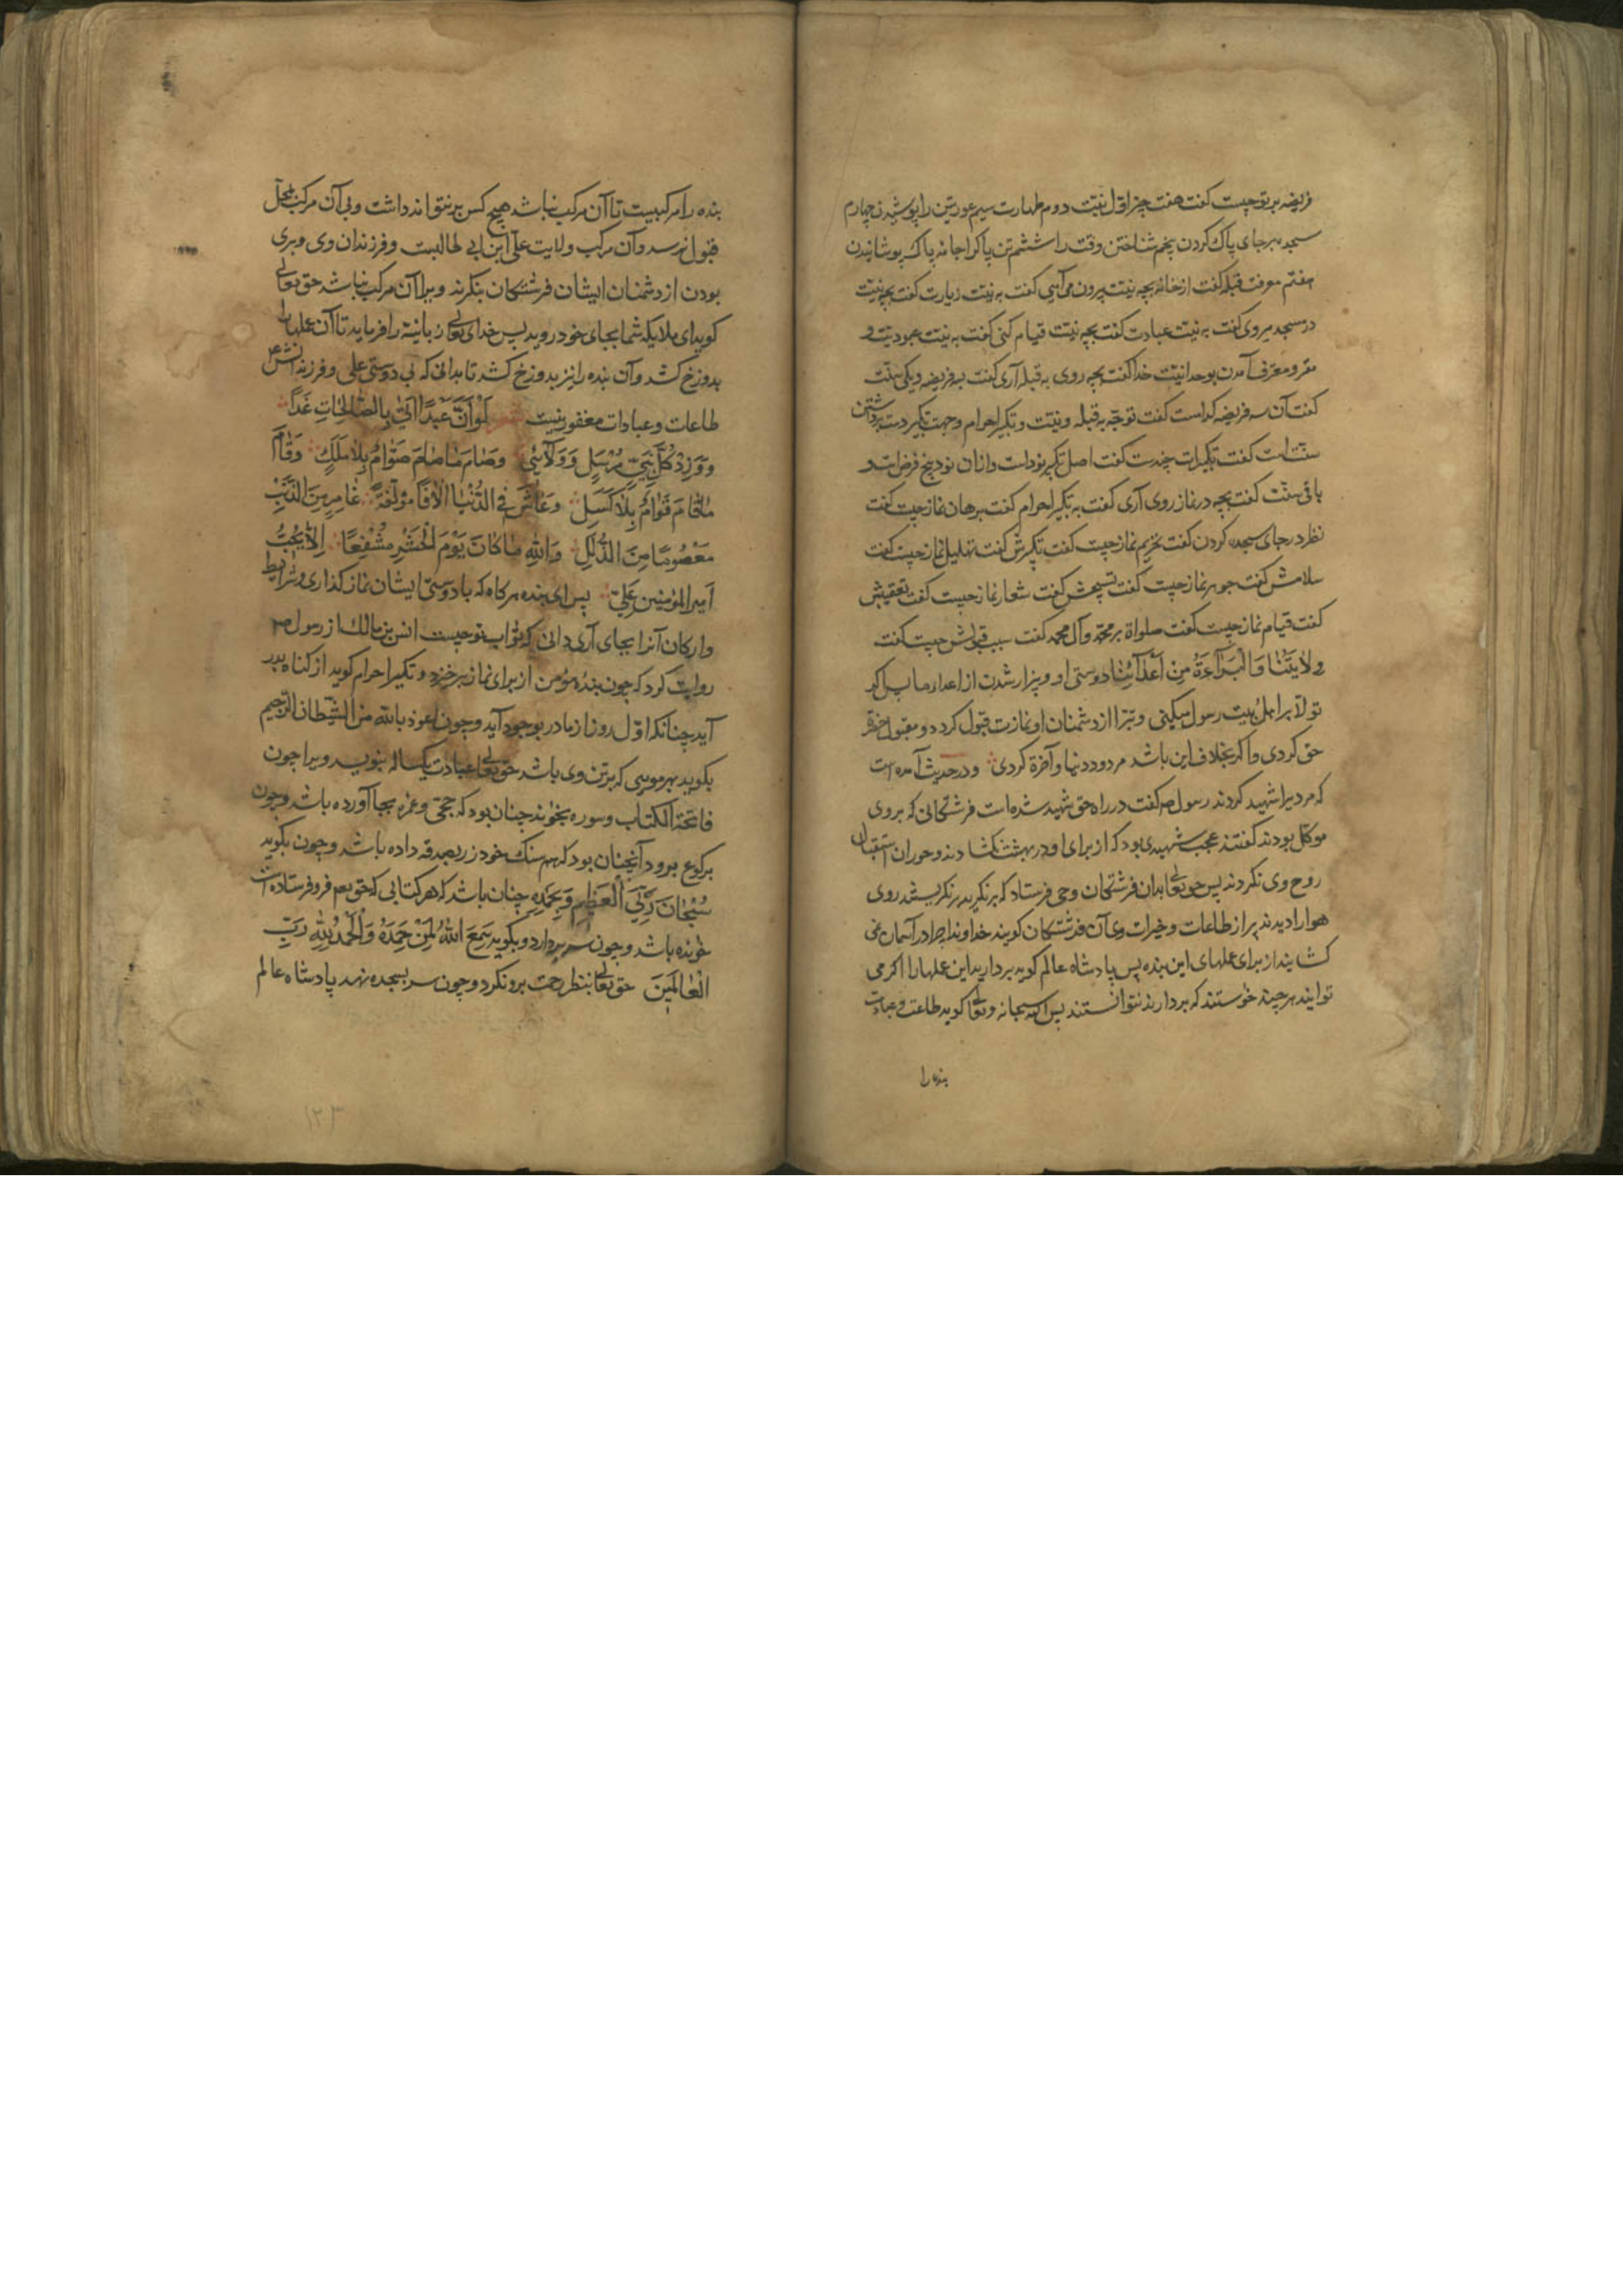 فریضه بر تو چیست کفت هفت چیز اوّل نیّت دوم طهارت سیم عورتین را پوشیدن چهارم
سجده بر جای پاک کردن پنجم شناختن وقت را ششم تن پاک را جامه پاک پوشانیدن
هفتم معرفت قبله کفت از خانه بچه نیّت بیرون می آیی کفت به نیّت زیارت کفت بچه نیّت
در مسجد میروی کفت به نیّت عبادت کفت بچه نیّت قیام کنی کفت به نیّت عبودیّت و
مقر و معترف آمدن بوحدانیّت خدا کفت بچه روی به قبله آری کفت به سه فریضه و یکی سنّت
کفت آن سه فریضه کدامست کفت توجّه به قبله و نیّت و تکبیر احرام و جهت تکبیر دست برداشتن
سنّت است کفت تکبیرات چندست کفت اصل تکبیر نود است و از ان نود پنج فرض است و
باقی سنّت کفت بچه در نماز روی آری کفت به تکبیر احرام کفت برهان نماز چیست کفت
نظر در جای سجده کردن کفت تحریم نماز چیست کفت تکبیرش کفت تهلیل نماز چیست کفت
سلامش کفت جوهر نماز چیست کفت تسبیحش کفت شعار نماز چیست کفت تعقیبش
کفت قیام نماز چیست کفت صلواة بر محمّد و آل محمد کفت سبب قبولش چیست کفت
وِلٰایَتُنٰا وَالْبَرٰآءَةُ مِنْ اَعْدٰآئِنٰا دوستی او و بیزار شدن از اعداء ما پس اکر
تولاّ بر اهل بیت رسول میکنی و تبرّا از دشمنان او نمازت قبول کردد و مقبول حضرت
حق کردی و اکر بخلاف این باشد مردود دنیا و آخرة کردی و در حدیث آمده است
که مردیرا شهید کردند رسول ص کفت در راه حق شهید شده است فرشتکانی که بر وی
موکّل بودند کفتند عجب شهیدی بود که از برای او در بهشت نکشادند و حوران استقبال
روح وی نکردند پس حق تعالی بدان فرشتکان وحی فرستاد که بر نکرید بر نکریستند روی
هوا را دیدند پر از طاعات و خیرات وی آن فرشتکان کویند خداوندا چرا در آسمان نمی
کشایند از برای عملهای این بنده پس پادشاه عالم کوید بردارید این عملها را اکر می
توانید هرچند خواستند که بردارند نتوانستند پس اکه سبحانه و تعالی کوید طاعت و عبادت
بنده را
بنده را مرکبیست تا آن مرکب نباشد هیچ کس بر نتواند داشت و بی آن مرکب بمحلّ
قبول نرسد و آن مرکب ولایت علی ابن ابی طالبست و فرزندان وی و بری
بودن از دشمنان ایشان فرشتکان بنکرند ویرا آن مرکب نباشد حق تعالی
کوید ای ملایکه شما بجای خود روید پس خدای تعالی زبانیه را فرماید تا آن عملها را
بدوزخ کشد و آن بنده را نیز بدوزخ کشد تا بدانی که بی دوستی علی و فرزندانش ع
طاعات و عبادات مغفور نیست لَوْ اَنَّ عَبْدًا اَتٰی بِالصّٰالِحٰاتِ غَدًا
وَ وَزِدْ کُلَّ نَبِیٍّ مُرْسَلٍ وَ وَلٰایَتِی وَصٰامَ مٰا صٰامَ صَوّٰامٌ بِلٰا مَلَلٍ وَقٰامَ
مٰا قٰامَ قَوّٰامٌ بِلٰا کَسَلٍ وَعٰاشَ فِی الدُّنْیٰا اٰلٰافًا مُؤَلَّفَةً عٰامِرٍ مِنَ الذَّنْبِ
مَعْصُومًا مِنَ الذَّلَلِ وَاللّٰهِ مٰا کٰانَ یَوْمَ الْحَشْرِ مُشْفِعًا اِلّٰا یُحِبُّ
اَمیرالمؤمنین عَلِیّ پس ای بنده هر کاه که با دوستی ایشان نماز کذاری و شرایط
و ارکان آنرا بجای آری دانی که ثواب تو چیست انس بن مالک از رسول ص
روایت کرد که چون بنده مؤمن از برای نماز برخیزد و تکبیر احرام کوید از کناه بدر
آید چنانکه اوّل روز از مادر بوجود آید و چون اعوذ بالله من الشیطان الرجیم
بکوید بهر مویی که بر تن وی باشد حق تعالی عبادت یکساله بنویسد ویرا چون
فاتحة الکتاب و سوره بخواند چنان بود که حجّی و عمره بجا آورده باشد و چون
برکوع برود آنچنان بود که هم سنک خود زر بصدقه داده باشد و چون بکوید
سُبْحٰانَ رَبِّیَ الْعَظیمِ وَبِحَمْدِهِ چنان باشد که هر کتابی که حق تعم فرو فرستاده است
خوانده باشد و چون سر بردارد و بکوید سَمِعَ اللّٰهُ لِمَنْ حَمِدَهُ وَالْحَمْدُلِلّٰهِ رَبِّ
الْعٰالَمینَ حق تعالی بنظر رحمت برو نکرد و چون سر بسجده نهد پادشاه عالم
۱۲۳